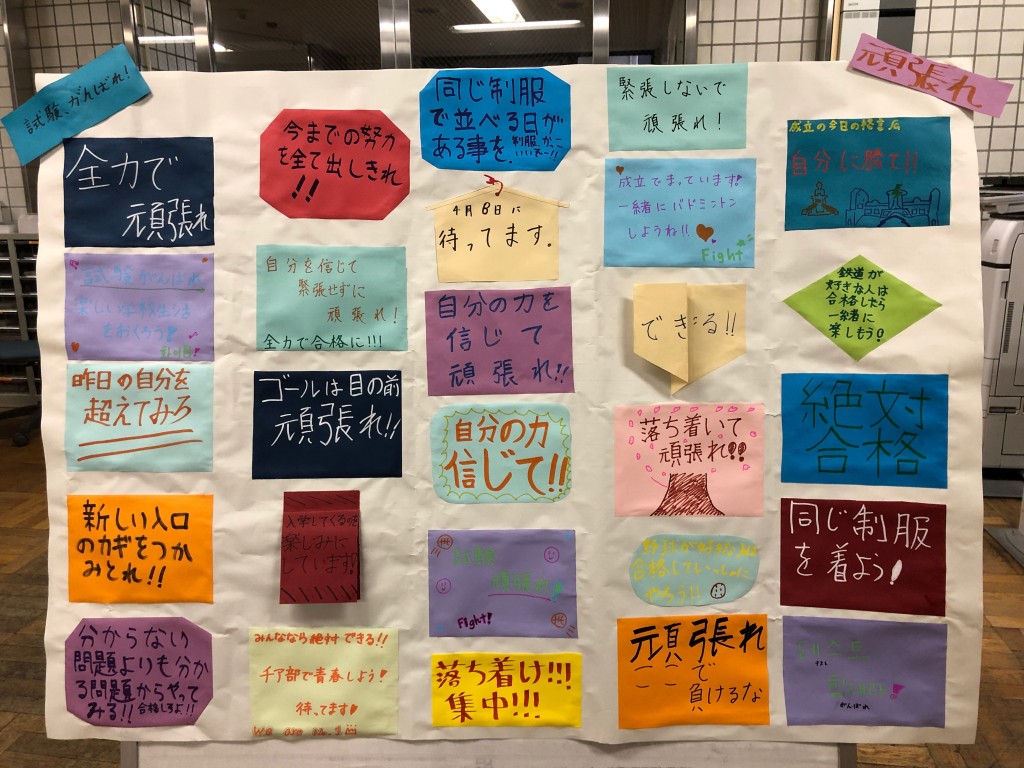 試験、がんばれ!
頑張れ
全力で
頑張れ
今までの努力
を全て出しきれ
!!
同じ制服
で並べる日が
ある事を.
制服かっこ
いいよ~!!
緊張しないで
頑張れ!
自分に勝て!!
4月8日に
待ってます.
成立でまっています!
一緒にバドミントン
しようね!!
Fight
試験がんばれ
楽しい学校生活
をおくろう!
自分を信じて
緊張せずに
頑張れ!
全力で合格に!!!
自分の力を
信じて
頑張れ!!
できる!!
鉄道が
好きな人は
合格したら
一緒に
楽しもう!
昨日の自分を
超えてみろ
ゴールは目の前
頑張れ!!
自分の力
信じて!!
落ち着いて
頑張れ!!
絶対
合格
新しい入口
のカギをつか
みとれ!!
入学してくるのを
楽しみに
しています!
試験
頑張れ!
Fight!
合格していっしょに
やろう!!
同じ制服
を着よう!
分からない
問題よりも分か
る問題からやって
みる!! 合格しろよ!!
みんななら絶対できる!!
チア部で青春しよう!
待ってます
We are No.1
落ち着け!!!
集中!!!
頑張れ
で
負けるな
がんばれ